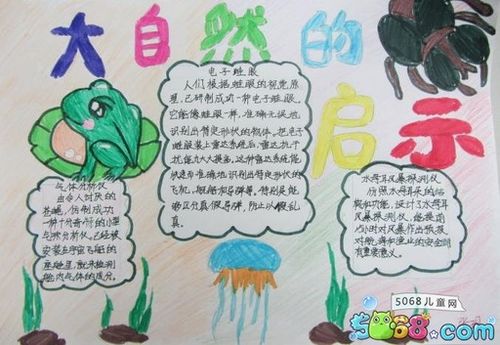 大自然的
启示
电子蛙眼
人们根据蛙眼的视觉原
理，已研制成功一种电子蛙眼。
它能像蛙眼一样，准确无误地
识别出特定形状的物体。把电子
蛙眼装上雷达系统后，雷达抗干
扰能力大大提高。这种雷达系统能
快速而准确地识别出特定形状的
飞机、舰船和导弹等。特别是能
够区分真假导弹，防止以假乱
真。
气体分析仪
由令人讨厌的
苍蝇，仿制成功
一种十分奇特的小型
气体分析仪。已经被
安装在宇宙飞船的
座舱里，用来检测
舱内气体的成分。
水母耳风暴预测仪
仿照水母耳朵的结
构和功能，设计了水母耳
风暴预测仪，能提前
15小时对风暴作出预报，
对航海和渔业的安全都
有重要意义。
5068儿童网
5068.com